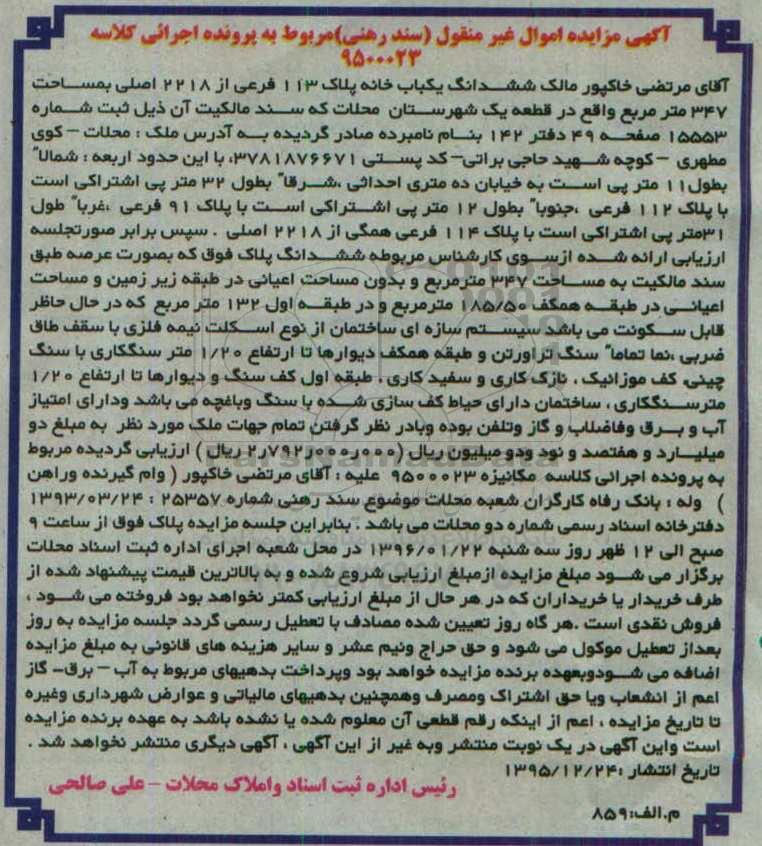 آگهی مزایده اموال غیر منقول (سند رهنی)مربوط به پرونده اجرائی کلاسه
۹۵۰۰۰۲۳
آقای مرتضی خاکپور مالک ششدانگ یکباب خانه پلاک ۱۱۳ فرعی از ۲۲۱۸ اصلی بمساحت
۳۴۷ متر مربع واقع در قطعه یک شهرستان محلات که سند مالکیت آن ذیل ثبت شماره
۱۵۵۵۳ صفحه ۴۹ دفتر ۱۴۲ بنام نامبرده صادر گردیده به آدرس ملک : محلات – کوی
مطهری – کوچه شهید حاجی براتی– کد پستی ۳۷۸۱۸۷۶۶۷۱، با این حدود اربعه : شمالا"
بطول۱۱ متر پی است به خیابان ده متری احداثی ،شرقا" بطول ۳۲ متر پی اشتراکی است
با پلاک ۱۱۲ فرعی ،جنوبا" بطول ۱۲ متر پی اشتراکی است با پلاک ۹۱ فرعی ،غربا" طول
۳۱متر پی اشتراکی است با پلاک ۱۱۴ فرعی همگی از ۲۲۱۸ اصلی . سپس برابر صورتجلسه
ارزیابی ارائه شده ازسوی کارشناس مربوطه ششدانگ پلاک فوق که بصورت عرصه طبق
سند مالکیت به مساحت ۳۴۷ مترمربع و بدون مساحت اعیانی در طبقه زیر زمین و مساحت
اعیانی در طبقه همکف ۱۸۵/۵۰ مترمربع و در طبقه اول ۱۳۲ متر مربع که در حال حاظر
قابل سکونت می باشد سیستم سازه ای ساختمان از نوع اسکلت نیمه فلزی با سقف طاق
ضربی ،نما تماما" سنگ تراورتن و طبقه همکف دیوارها تا ارتفاع ۱/۲۰ متر سنگکاری با سنگ
چینی، کف موزائیک ، نازک کاری و سفید کاری ، طبقه اول کف سنگ و دیوارها تا ارتفاع ۱/۲۰
مترسنگکاری ، ساختمان دارای حیاط کف سازی شده با سنگ وباغچه می باشد ودارای امتیاز
آب و برق وفاضلاب و گاز وتلفن بوده وبادر نظر گرفتن تمام جهات ملک مورد نظر به مبلغ دو
میلیارد و هفتصد و نود ودو میلیون ریال (۲٫۷۹۲٫۰۰۰٫۰۰۰ ریال ) ارزیابی گردیده مربوط
به پرونده اجرائی کلاسه مکانیزه ۹۵۰۰۰۲۳ علیه : آقای مرتضی خاکپور ( وام گیرنده وراهن
) وله : بانک رفاه کارگران شعبه محلات موضوع سند رهنی شماره ۲۵۳۵۷ : ۱۳۹۳/۰۳/۲۴
دفترخانه اسناد رسمی شماره دو محلات می باشد . بنابراین جلسه مزایده پلاک فوق از ساعت ۹
صبح الی ۱۲ ظهر روز سه شنبه ۱۳۹۶/۰۱/۲۲ در محل شعبه اجرای اداره ثبت اسناد محلات
برگزار می شود مبلغ مزایده ازمبلغ ارزیابی شروع شده و به بالاترین قیمت پیشنهاد شده از
طرف خریدار یا خریداران که در هر حال از مبلغ ارزیابی کمتر نخواهد بود فروخته می شود ،
فروش نقدی است .هر گاه روز تعیین شده مصادف با تعطیل رسمی گردد جلسه مزایده به روز
بعداز تعطیل موکول می شود و حق حراج ونیم عشر و سایر هزینه های قانونی به مبلغ مزایده
اضافه می شودوبعهده برنده مزایده خواهد بود وپرداخت بدهیهای مربوط به آب – برق– گاز
اعم از انشعاب ویا حق اشتراک ومصرف وهمچنین بدهیهای مالیاتی و عوارض شهرداری وغیره
تا تاریخ مزایده ، اعم از اینکه رقم قطعی آن معلوم شده یا نشده باشد به عهده برنده مزایده
است واین آگهی در یک نوبت منتشر وبه غیر از این آگهی ، آگهی دیگری منتشر نخواهد شد .
تاریخ انتشار :۱۳۹۵/۱۲/۲۴
رئیس اداره ثبت اسناد واملاک محلات – علی صالحی
م.الف:۸۵۹